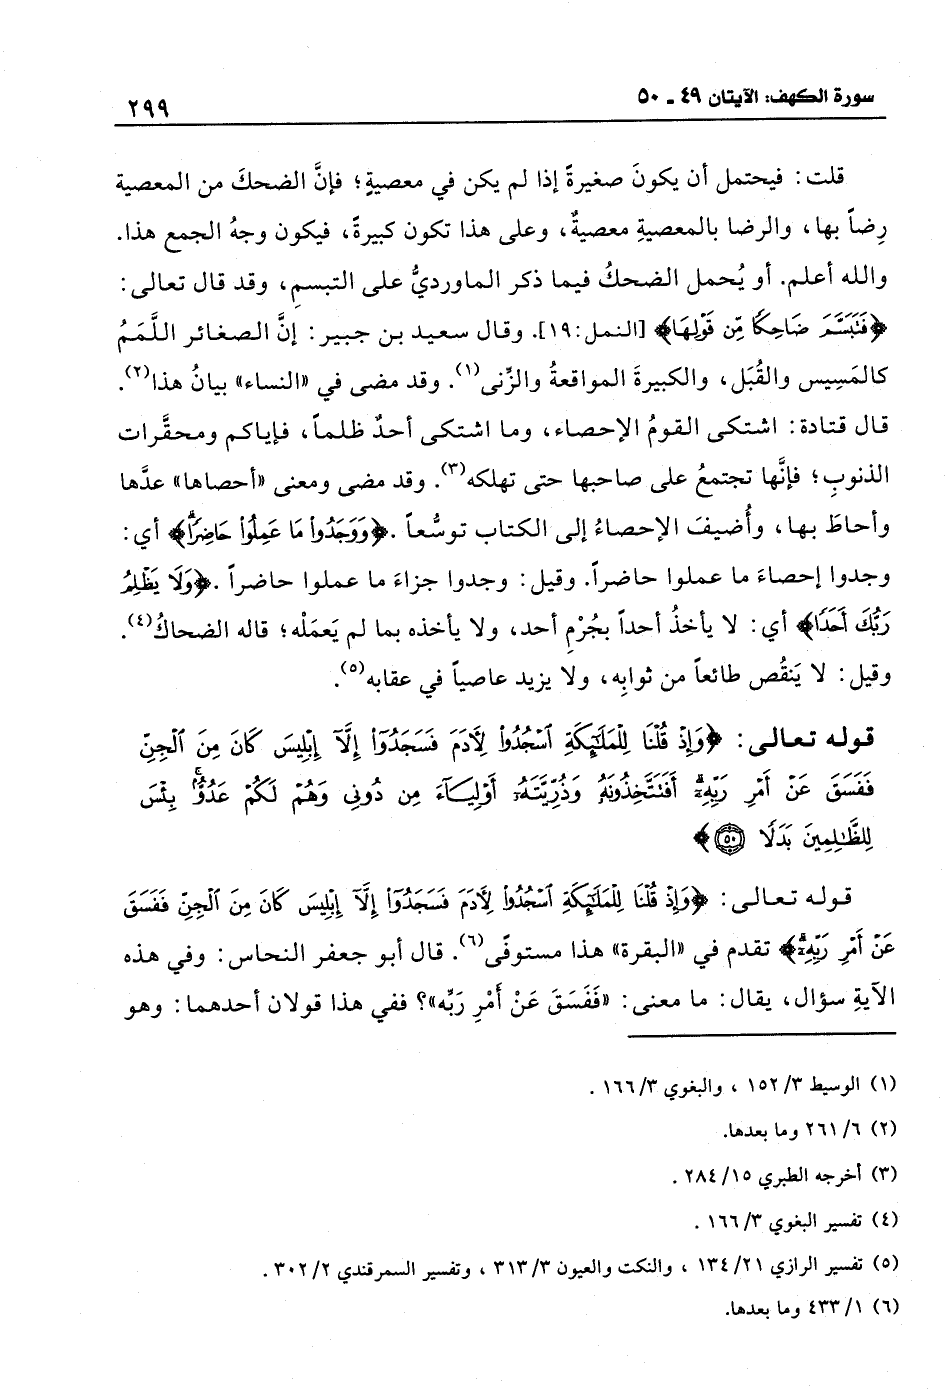 سورة الكهف: الآيتان ٤٩ - ٥٠
٢٩٩
قلت: فيحتمل أن يكونَ صغيرةً إذا لم يكن في معصيةٍ؛ فإنَّ الضحكَ من المعصية
رِضاً بها، والرضا بالمعصيةِ معصيةٌ، وعلى هذا تكون كبيرةً، فيكون وجهُ الجمع هذا.
والله أعلم. أو يُحمل الضحكُ فيما ذكر الماورديُّ على التبسمِ، وقد قال تعالى:
﴿فَتَبَسَّمَ ضَاحِكًا مِّن قَوْلِهَا﴾ [النمل:١٩]. وقال سعيد بن جبير: إنَّ الصغائر اللَّمَمُ
كالمَسِيس والقُبَل، والكبيرةَ المواقعةُ والزِّنى(١). وقد مضى في «النساء» بيانُ هذا(٢).
قال قتادة: اشتكى القومُ الإحصاء، وما اشتكى أحدٌ ظلماً، فإياكم ومحقَّرات
الذنوبِ؛ فإنَّها تجتمعُ على صاحبها حتى تهلكه(٣). وقد مضى ومعنى «أحصاها» عدَّها
وأحاطَ بها، وأُضيفَ الإحصاءُ إلى الكتاب توسُّعاً. ﴿وَوَجَدُواْ مَا عَمِلُواْ حَاضِرًاۗ﴾ أي:
وجدوا إحصاءَ ما عملوا حاضراً. وقيل: وجدوا جزاءَ ما عملوا حاضراً. ﴿وَلَا يَظْلِمُ
رَبُّكَ أَحَدًا﴾ أي: لا يأخذُ أحداً بجُرْمِ أحد، ولا يأخذه بما لم يَعمَلْه؛ قاله الضحاكُ(٤).
وقيل: لا يَنقُص طائعاً من ثوابِه، ولا يزيد عاصياً في عقابه(٥).
قوله تعالى: ﴿وَإِذْ قُلْنَا لِلْمَلَٰٓئِكَةِ ٱسْجُدُواْ لِأَدَمَ فَسَجَدُوٓاْ إِلَّآ إِبْلِيسَ كَانَ مِنَ ٱلْجِنِّ
فَفَسَقَ عَنْ أَمْرِ رَبِّهِۦٓۗ أَفَتَتَّخِذُونَهُۥ وَذُرِّيَّتَهُۥٓ أَوْلِيَآءَ مِن دُونِى وَهُمْ لَكُمْ عَدُوٌّۢۚ بِئْسَ
لِلظَّٰلِمِينَ بَدَلًا ۝٥٠﴾
قوله تعالى: ﴿وَإِذْ قُلْنَا لِلْمَلَٰٓئِكَةِ ٱسْجُدُواْ لِأَدَمَ فَسَجَدُوٓاْ إِلَّآ إِبْلِيسَ كَانَ مِنَ ٱلْجِنِّ فَفَسَقَ
عَنْ أَمْرِ رَبِّهِۦٓۗ﴾ تقدم في «البقرة» هذا مستوفًى(٦). قال أبو جعفر النحاس: وفي هذه
الآيةِ سؤال، يقال: ما معنى: «فَفَسَقَ عَنْ أَمْرِ رَبِّه»؟ ففي هذا قولان أحدهما: وهو
(١) الوسيط ٣/ ١٥٢، والبغوي ٣/ ١٦٦.
(٢) ٦/ ٢٦١ وما بعدها.
(٣) أخرجه الطبري ١٥/ ٢٨٤.
(٤) تفسير البغوي ٣/ ١٦٦.
(٥) تفسير الرازي ٢١/ ١٣٤، والنكت والعيون ٣/ ٣١٣، وتفسير السمرقندي ٢/ ٣٠٢.
(٦) ١/ ٤٣٣ وما بعدها.